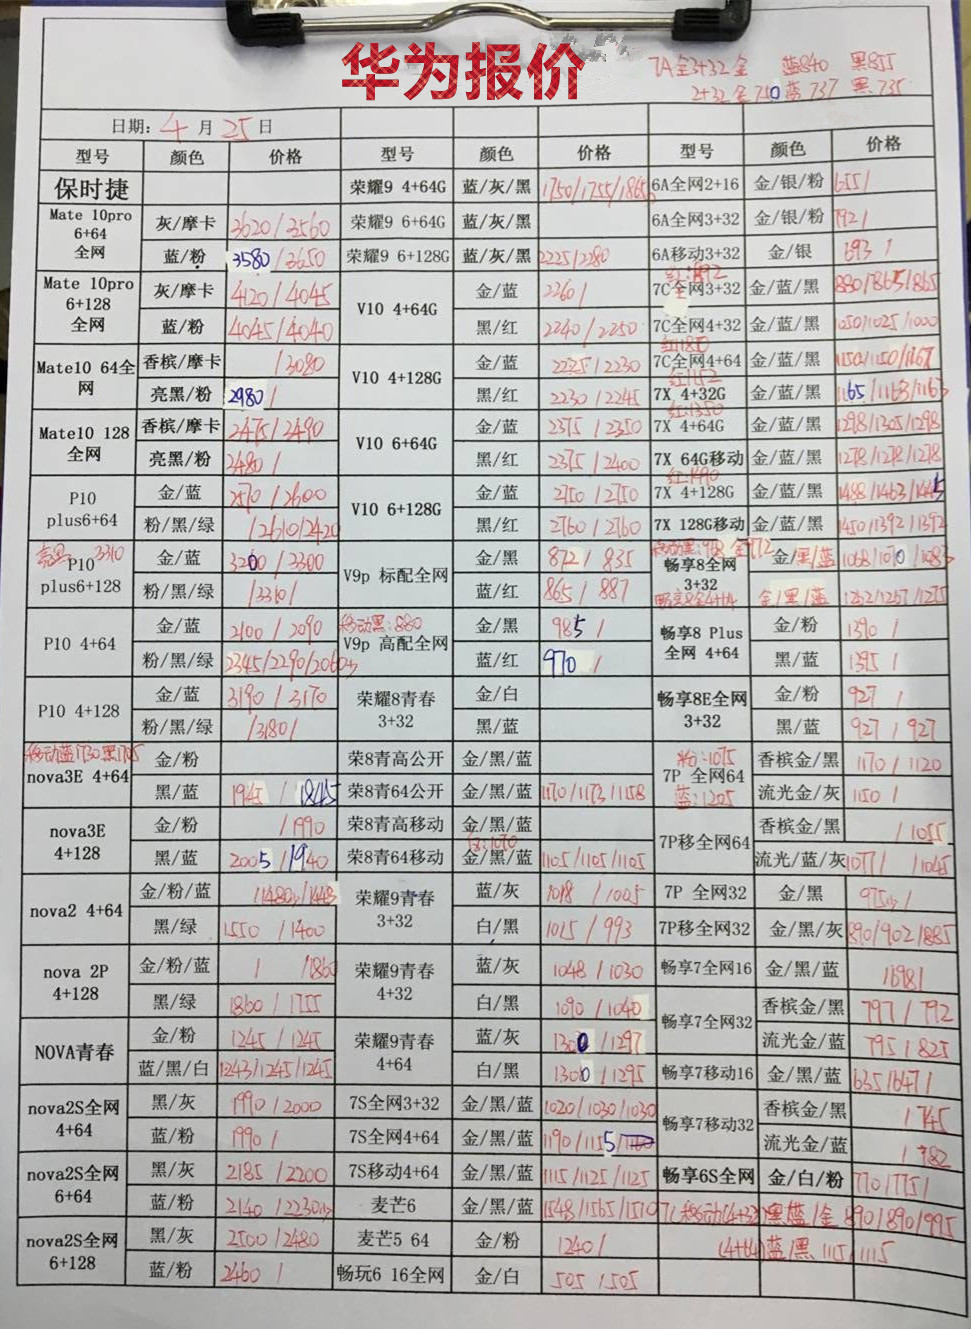 华为报价
7A全3+32 金 蓝840 黑855
2+32 金750 蓝737 黑735
日期: 4 月 25 日
型号 颜色 价格 型号 颜色 价格 型号 颜色 价格
保时捷 荣耀9 4+64G 蓝/灰/黑 1750/1755/1865 6A全网2+16 金/银/粉 655/
Mate 10pro 6+64 全网 灰/摩卡 3620/3560 荣耀9 6+64G 蓝/灰/黑 6A全网3+32 金/银/粉 792/
蓝/粉 3580/3650 荣耀9 6+128G 蓝/灰/黑 2225/2280 6A移动3+32 金/银 693/
Mate 10pro 6+128 全网 灰/摩卡 4120/4045 V10 4+64G 金/蓝 2260/ 7C全网3+32 金/蓝/黑 880/865/865
蓝/粉 4045/4040 黑/红 2240/2250 7C全网4+32 金/蓝/黑 1050/1025/1020
Mate10 64全网 香槟/摩卡 /3080 V10 4+128G 金/蓝 2225/2230 红1180 7C全网4+64 金/蓝/黑 1150/1150/1167
亮黑/粉 2980/ 黑/红 2230/2245 红1152 7X 4+32G 金/蓝/黑 1165/1163/1163
Mate10 128全网 香槟/摩卡 2475/2490 V10 6+64G 金/蓝 2375/2350 红:1350 7X 4+64G 金/蓝/黑 1298/1305/1298
亮黑/粉 2480/ 黑/红 2375/2400 7X 64G移动 金/蓝/黑 1278/1278/1278
P10 plus6+64 金/蓝 2570/2600 V10 6+128G 金/蓝 2750/2750 红:1490 7X 4+128G 金/蓝/黑 1488/1463/1445
粉/黑/绿 /2610/2420 黑/红 2760/2760 7X 128G移动 金/蓝/黑 1450/1392/1392
亮黑 3310 P10 plus6+128 金/蓝 3200/3300 V9p 标配全网 金/黑 872/835 畅享8全网 3+32 金/黑/蓝 1068/1070/1083
粉/黑/绿 /3310/ 蓝/红 865/887 畅享8全4+64 金/黑/蓝 1252/1257/1275
P10 4+64 金/蓝 2100/2090 移动黑:880 V9p 高配全网 金/黑 985/ 畅享8 Plus 全网 4+64 金/粉 1390/
粉/黑/绿 2345/2290/2060 蓝/红 970/ 黑/蓝 1395/
P10 4+128 金/蓝 3190/3170 荣耀8青春 3+32 金/白 畅享8E全网 3+32 金/粉 927/
粉/黑/绿 /3180/ 黑/蓝 黑/蓝 927/927
移动蓝1730黑1705 nova3E 4+64 金/粉 荣8青高公开 金/黑/蓝 粉:1075 7P 全网64 蓝:1205 香槟金/黑 1170/1120
黑/蓝 1945/1845 荣8青64公开 金/黑/蓝 1170/1173/1158 流光金/灰 1150/
nova3E 4+128 金/粉 /1990 荣8青高移动 金/黑/蓝 7P移全网64 香槟金/黑 /1055
黑/蓝 2005/1940 荣8青64移动 金/黑/蓝 1105/1105/1105 流光/蓝/灰 1077/ /1045
nova2 4+64 金/粉/蓝 /1480/1448 荣耀9青春 3+32 蓝/灰 1018/1005 7P 全网32 金/黑 975/
黑/绿 1550/1400 白/黑 1015/993 7P移全网32 金/黑/灰 890/902/885
nova 2P 4+128 金/粉/蓝 / /1860 荣耀9青春 4+32 蓝/灰 1048/1030 畅享7全网16 金/黑/蓝 /698/
黑/绿 1860/1755 白/黑 1090/1040 畅享7全网32 香槟金/黑 797/792
NOVA青春 金/粉 1245/1245 荣耀9青春 4+64 蓝/灰 1300/1297 流光金/蓝 795/825
蓝/黑/白 1243/1245/1245 白/黑 1300/1295 畅享7移动16 金/黑/蓝 635/647/
nova2S全网 4+64 黑/灰 1990/2000 7S全网3+32 金/黑/蓝 1020/1030/1030 畅享7移动32 香槟金/黑 /745
蓝/粉 1990/ 7S全网4+64 金/黑/蓝 1190/1155/ 流光金/蓝 /782
nova2S全网 6+64 黑/灰 2185/2200 7S移动4+64 金/黑/蓝 1115/1125/1125 畅享6S全网 金/白/粉 770/775/
蓝/粉 2140/2230 麦芒6 金/黑/蓝 1548/1565/1510 7C移动(4+32) 黑/蓝/金 890/890/995
nova2S全网 6+128 黑/灰 2500/2480 麦芒5 64 金/粉 1240/ (4+64) 蓝/黑 1115/1115
蓝/粉 2460/ 畅玩6 16全网 金/白 505/505